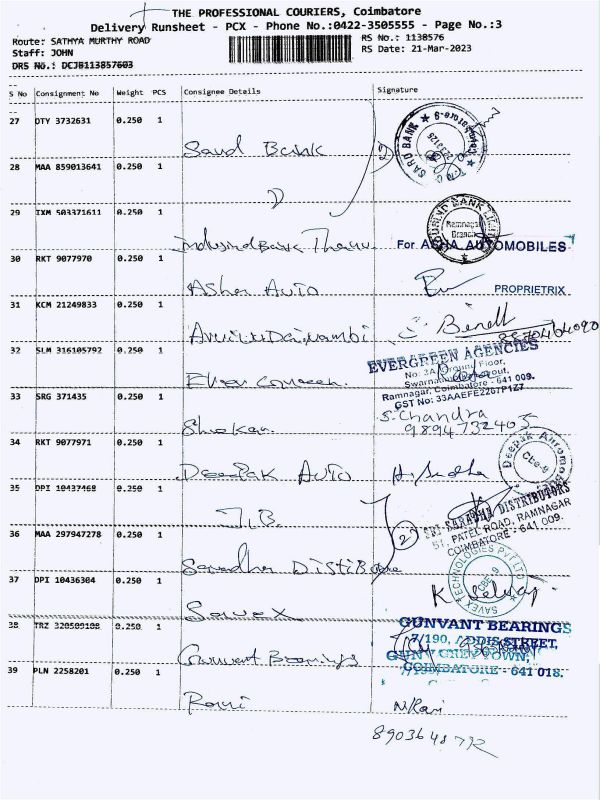 THE PROFESSIONAL COURIERS, Coimbatore
Delivery Runsheet - PCX - Phone No.:0422-3505555 - Page No.:3
Route: SATHYA MURTHY ROAD RS No.: 1138576
Staff: JOHN RS Date: 21-Mar-2023
DRS No.: DCJB113857603
S No Consignment No Weight PCS Consignee Details Signature
27 DTY 3732631 0.250 1
Sard Bank 2) SARD BANK
28 MAA 859013641 0.250 1
29 IXM 503371611 0.250 1
Ramnagar Branch
Indusind Bank For ASHA AUTOMOBILES
30 RKT 9077970 0.250 1
Asher Auto PROPRIETRIX
31 KCM 21249833 0.250 1
Binell
32 SLM 316105792 0.250 1
EVERGREEN AGENCIES
No: 3A, Ground Floor,
Ramnagar, Coimbatore - 641 009.
GST No: 33AAEFE2267P1Z7
33 SRG 371435 0.250 1
S. Chandra
Shekar 9894732405
34 RKT 9077971 0.250 1
Deepak Auto H. Sudha
35 DPI 10437468 0.250 1
J.B. 2 SRI SARADHA DISTRIBUTORS
57, PATEL ROAD, RAMNAGAR
COIMBATORE - 641 009.
36 MAA 297947278 0.250 1
Saradha
37 DPI 10436304 0.250 1
SAVEX TECHNOLOGIES PVT LTD
CBE-9
Savex K. Selvaj
38 TRZ 320509108 0.250 1
GUNVANT BEARINGS
7/190, ADDIS STREET,
GREY TOWN,
COIMBATORE - 641 018.
Gunvant Bearings
39 PLN 2258201 0.250 1
Ravi N. Ravi